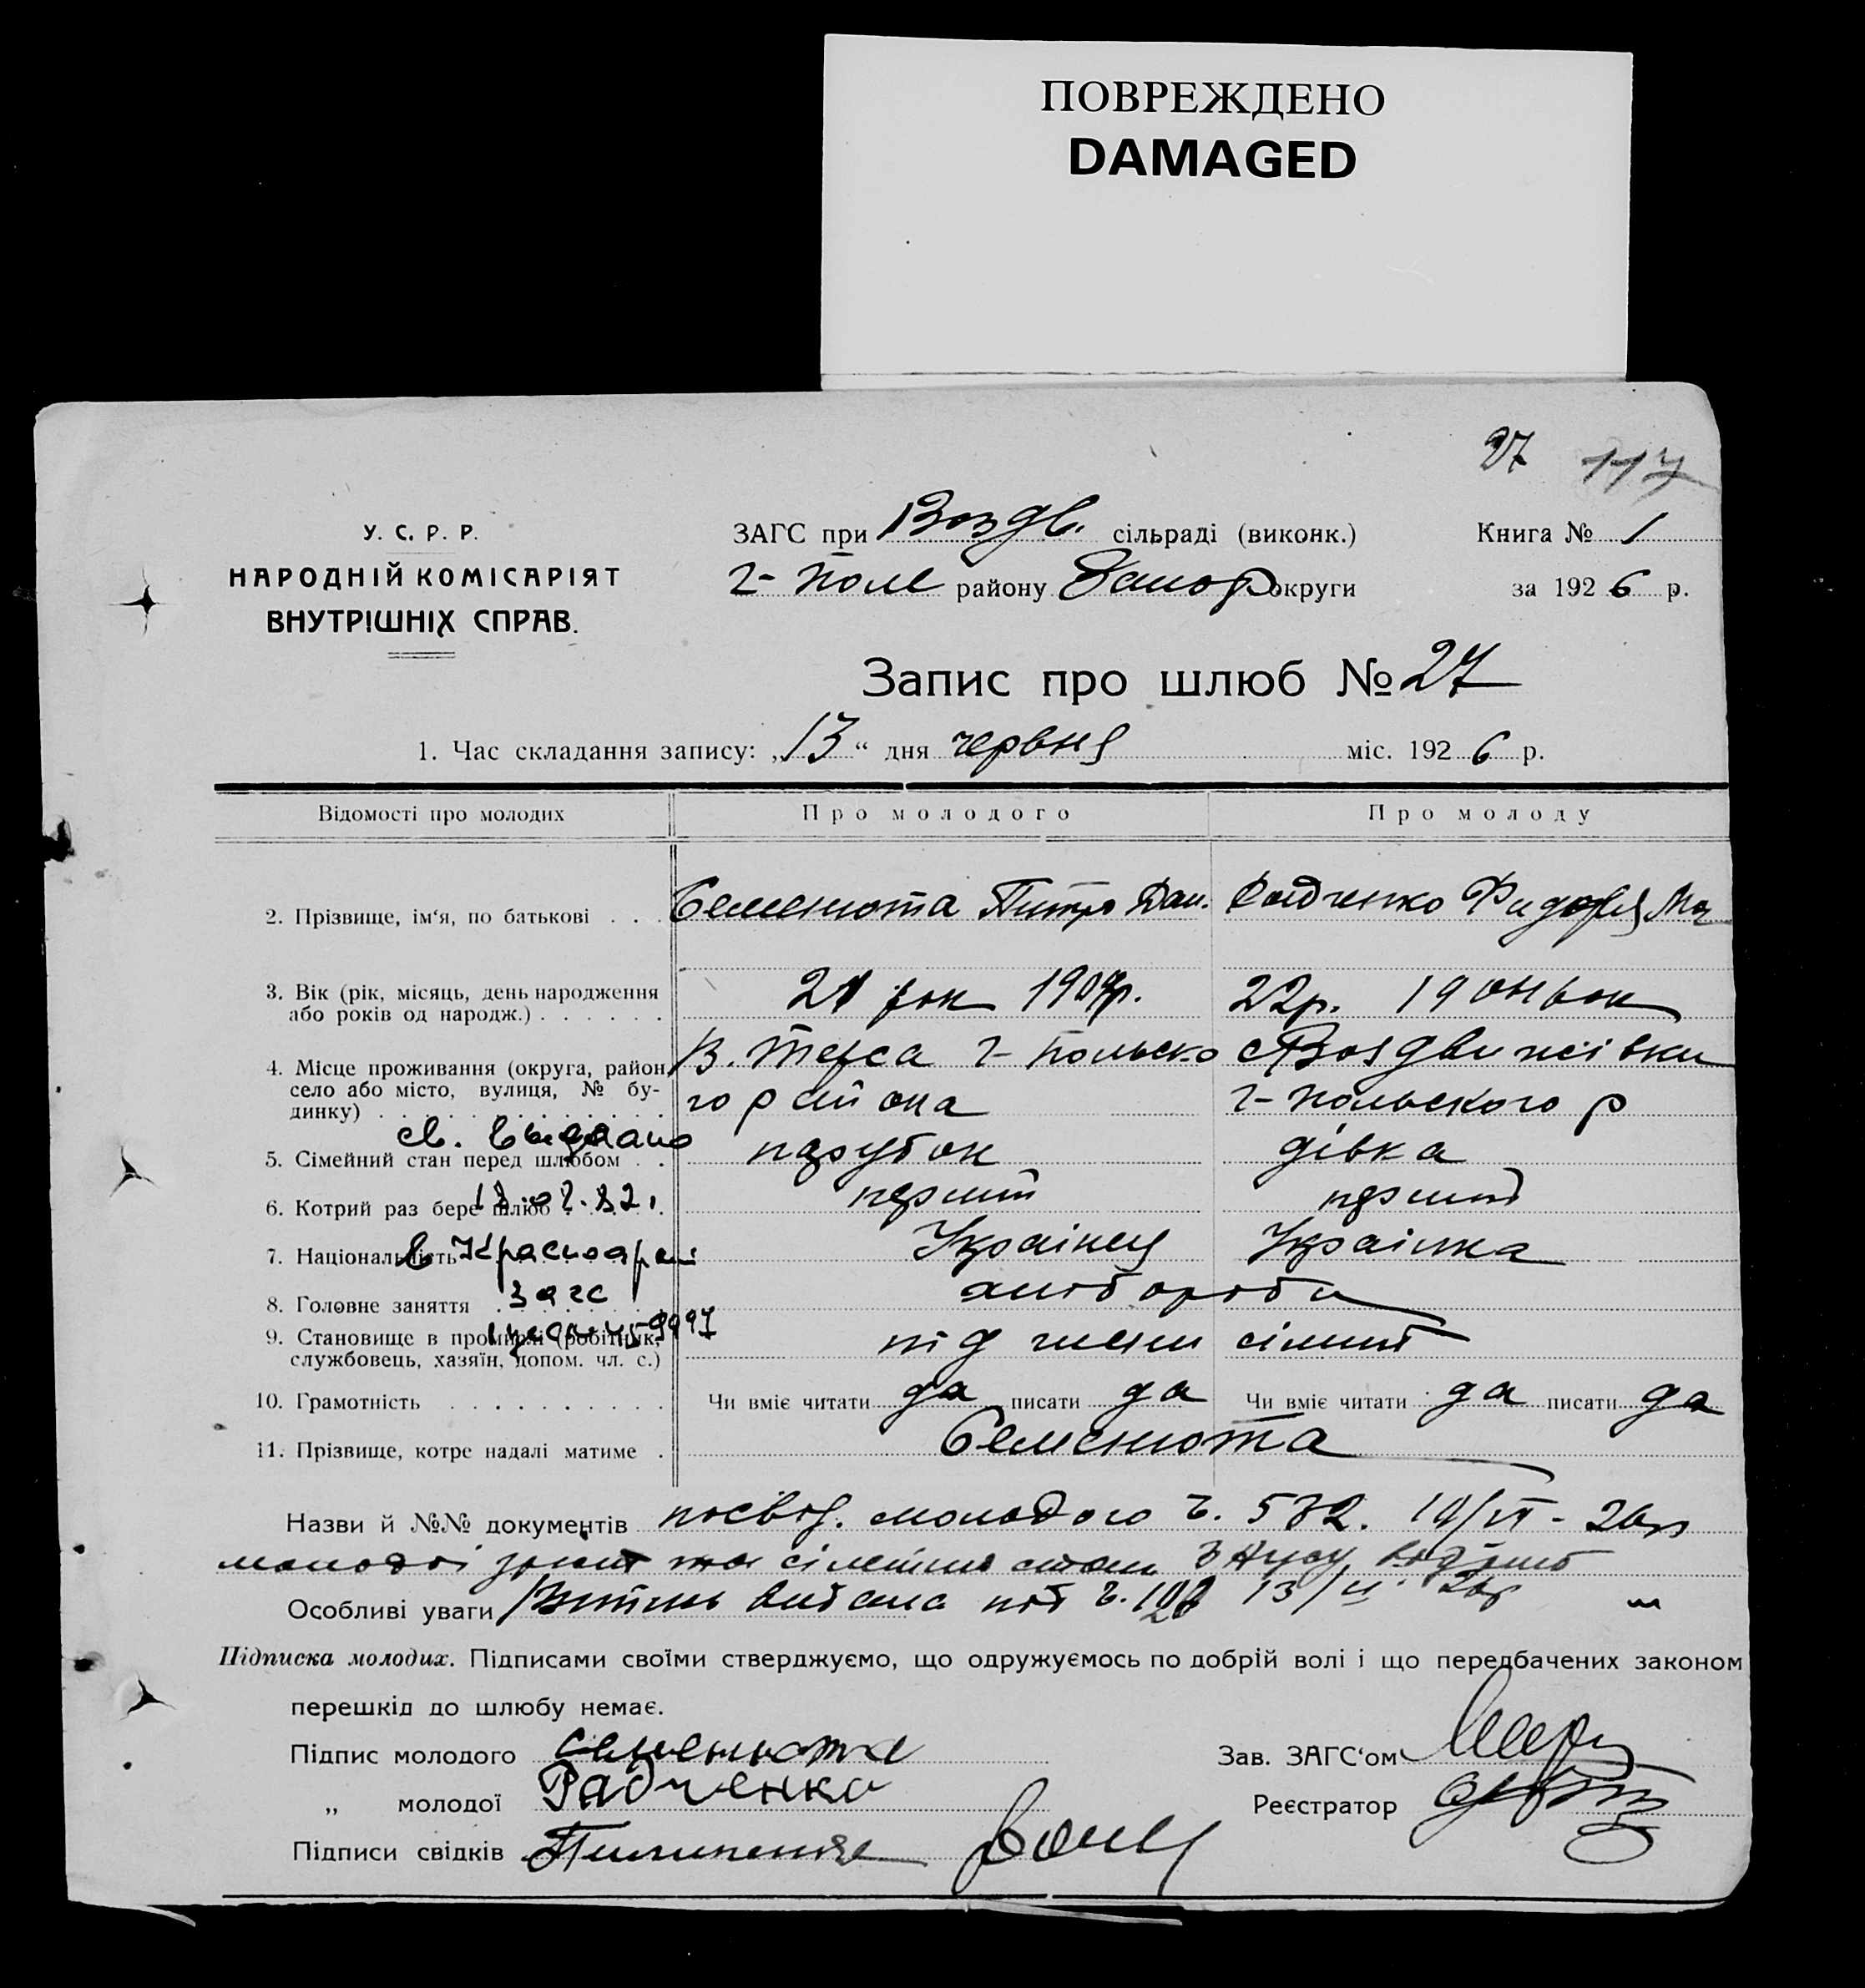 ПОВРЕЖДЕНО
DAMAGED
27 117
У. С. Р. Р.
НАРОДНІЙ КОМІСАРІЯТ
ВНУТРІШНІХ СПРАВ.
ЗАГС при Воздв. сільраді (виконк.)
Г-Поле району Запор округи
Книга № 1
за 1926 р.
Запис про шлюб № 27
1. Час складання запису: „13“ дня червня міс. 1926 р.
Відомості про молодих Про молодого Про молоду
2. Прізвище, ім‘я, по батькові . . . Семенюта Питро Дан. Радченко
3. Вік (рік, місяць, день народження
або років од народж.) . . . . . . 21 рок 22р.
4. Місце проживання (округа, район,
село або місто, вулиця, № бу-
динку) В. Терса Г-Польско
го района
Воздвижівки
Г-Польского р
св. выдано
5. Сімейний стан перед шлюбом . . парубок дівка
6. Котрий раз бере шлюб перший перший
7. Національність Українец Українка
в Красноарм
8. Головне заняття хлібороби
загс
9. Становище в промислі (робітник,
службовець, хазяїн, допом. чл. с.) під член сімьї
10. Грамотність . . . . . . . . . . Чи вміє читати да писати да Чи вміє читати да писати да
11. Прізвище, котре надалі матиме . Семенюта
Назви й №№ документів посвід. молодого ч. 532.
молодої сімейний стан
Особливі уваги Витяг видана під ч. 13/VI 26р
Підписка молодих. Підписами своїми стверджуємо, що одружуємось по добрій волі і що передбачених законом
перешкід до шлюбу немає.
Підпис молодого Семенюта
„ молодої Радченко
Підписи свідків
Зав. ЗАГС‘ом
Реєстратор